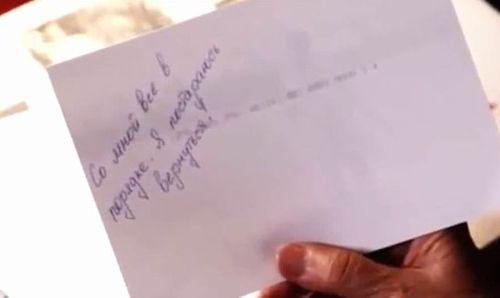 Со мной все в
порядке. Я постараюсь
вернуться!